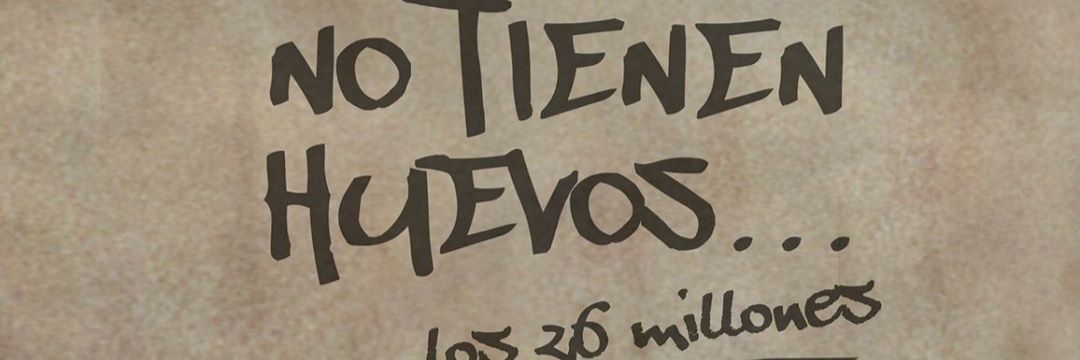 NO TIENEN
HUEVOS...
los 26 millones